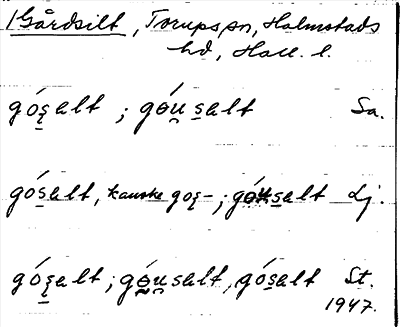 Gårdsilt, Torups sn, Halmstads
hd, Hall. l.
gó̱salt ; góu̱s̱alt Sa.
góṣalt, kanske gos̱– ; góus̱alt Lj.
gó̱salt ; góu̱salt, góṣalt St.
1947.